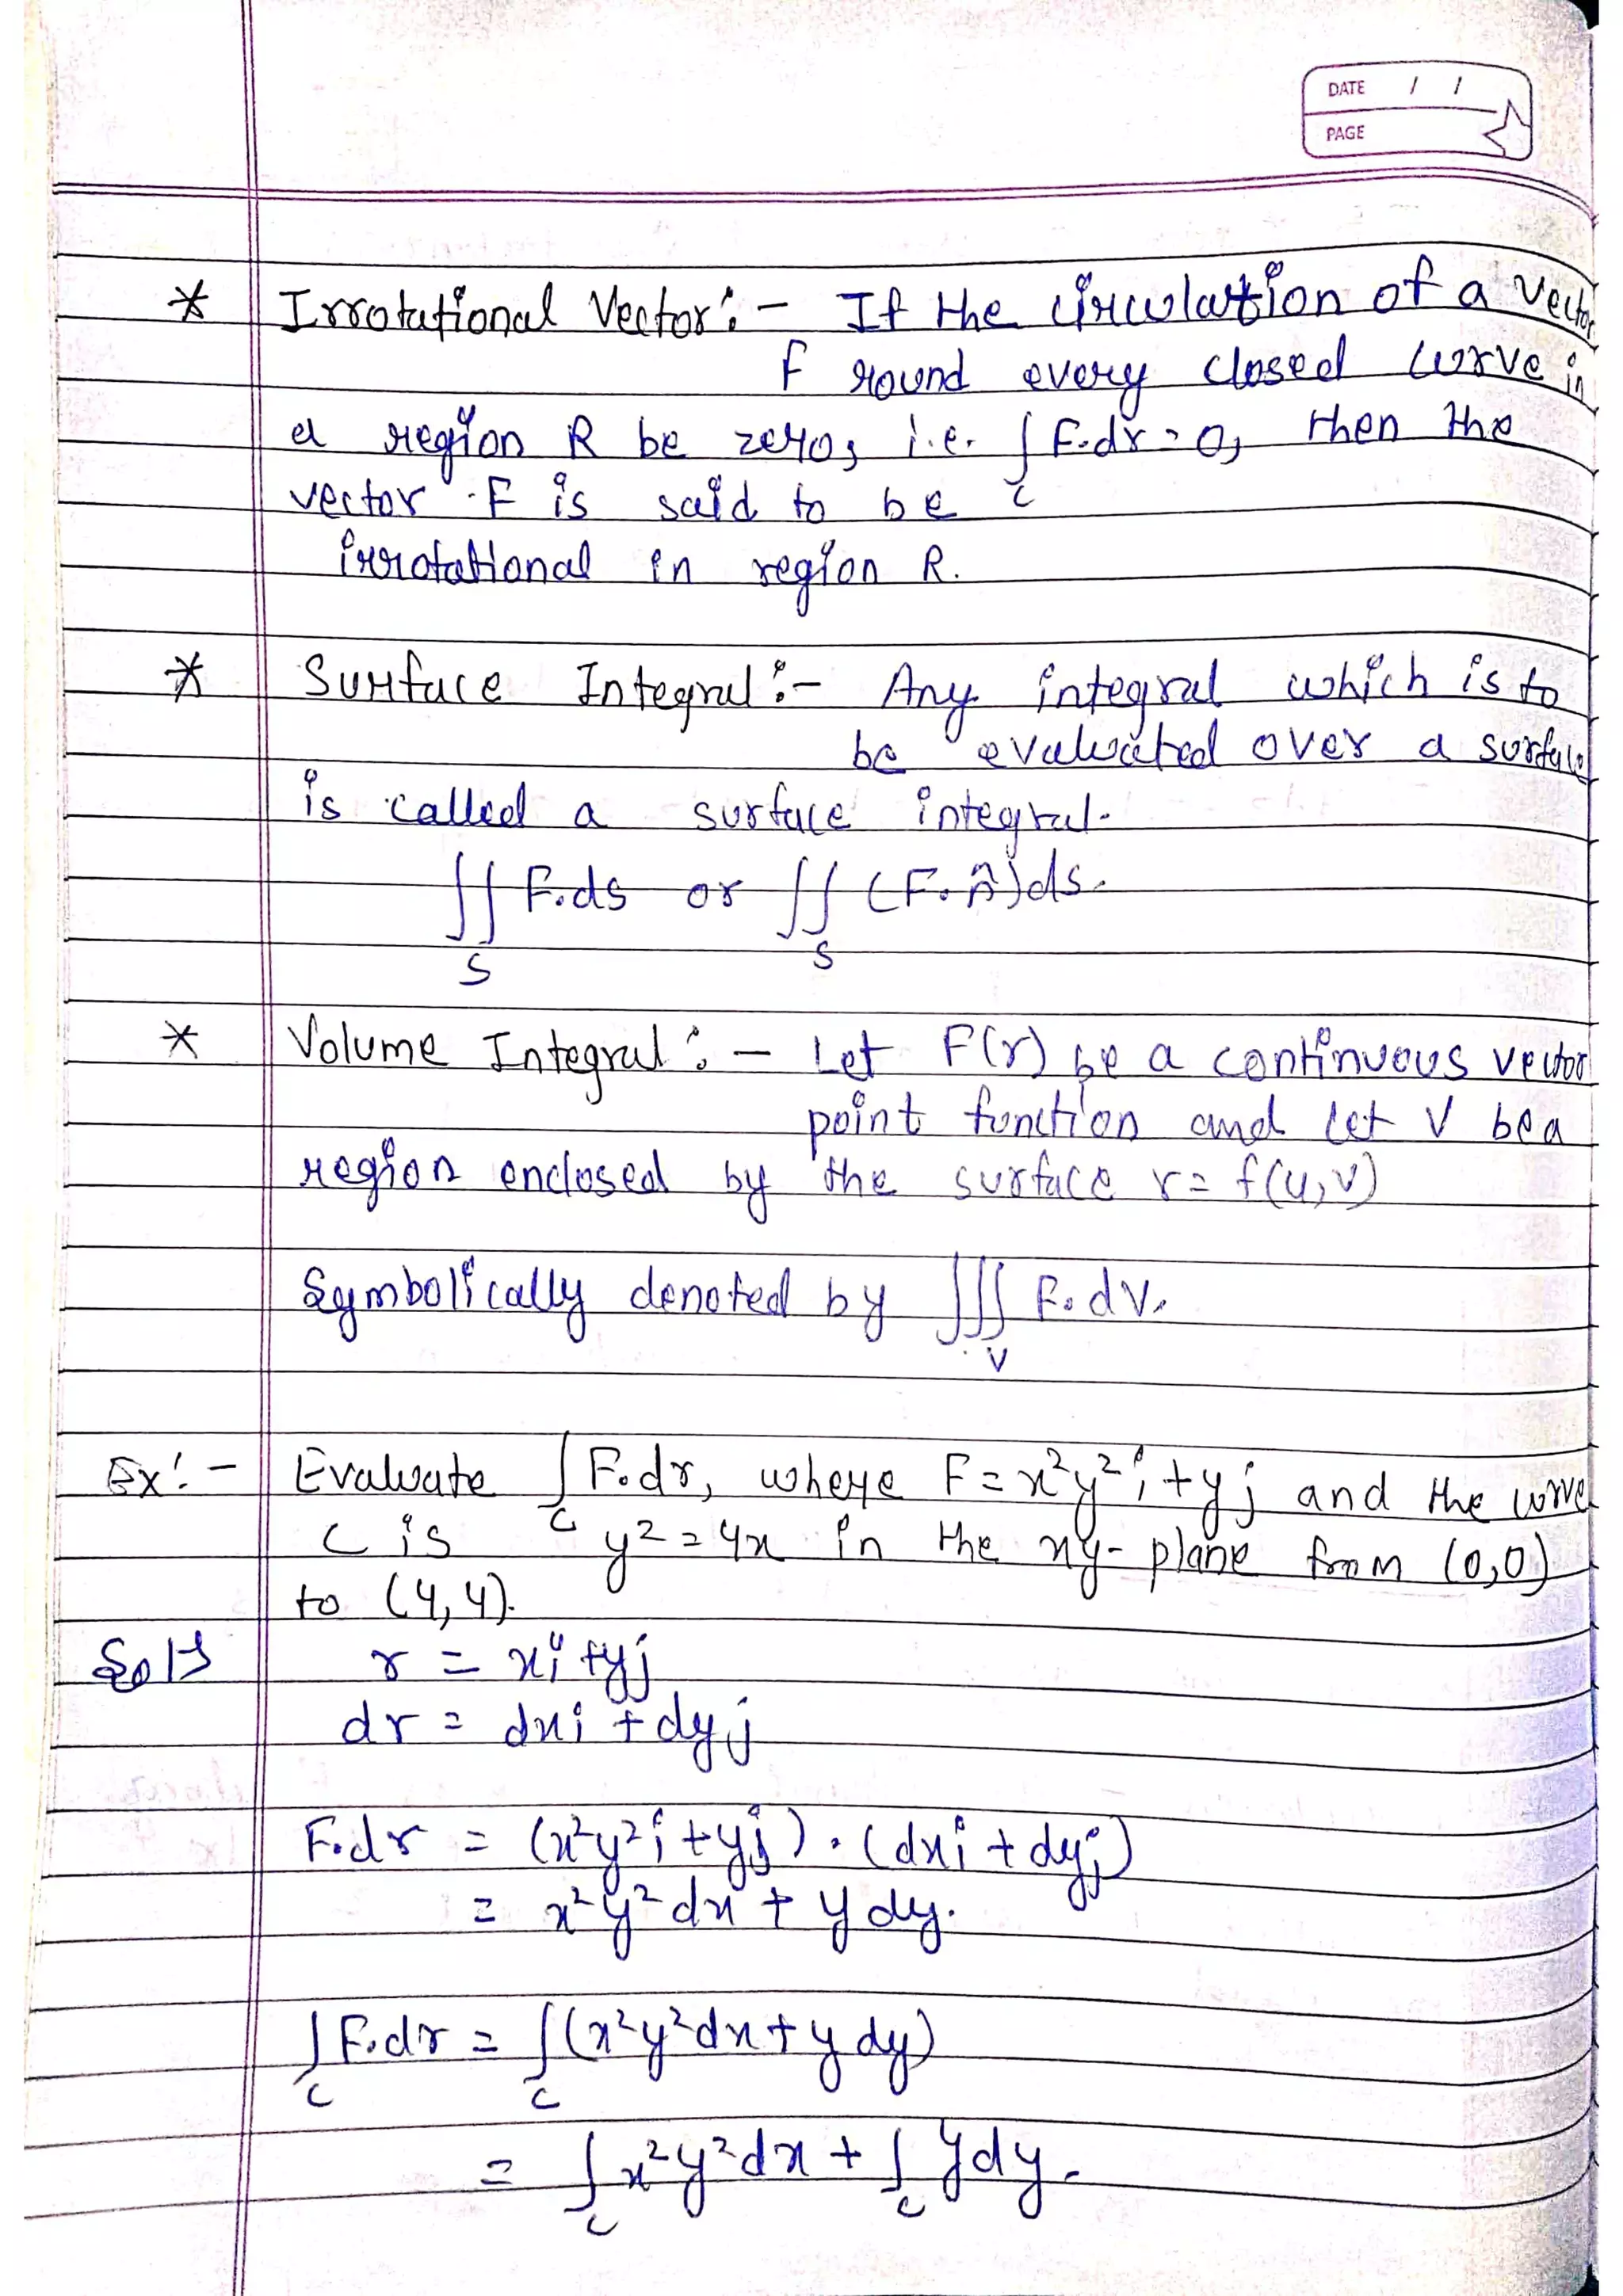 DATE / /
PAGE
* Irrotational Vector :- If the circulation of a vector
F round every closed curve in
a region R be zero, i.e. ∫ F.dr = 0, then the
c
vector F is said to be
irrotational in region R.
* Surface Integral :- Any integral which is to
be evaluated over a surface
is called a surface integral.
∬ F.ds or ∬ (F.n̂)ds.
S S
* Volume Integral :- Let F(r) be a continuous vector
point function and let V be a
region enclosed by the surface r = f(u,v)
Symbolically denoted by ∭ F.dV.
V
Ex:- Evaluate ∫ F.dr, where F = x²y²i + yj and the curve
c
C is y² = 4x in the xy-plane from (0,0)
to (4,4).
Solⁿ r = xi + yj
dr = dxi + dyj
F.dr = (x²y²i + yj) . (dxi + dyj)
= x²y²dx + y dy.
∫ F.dr = ∫(x²y²dx + y dy)
c c
= ∫ x²y²dx + ∫ ydy.
c c